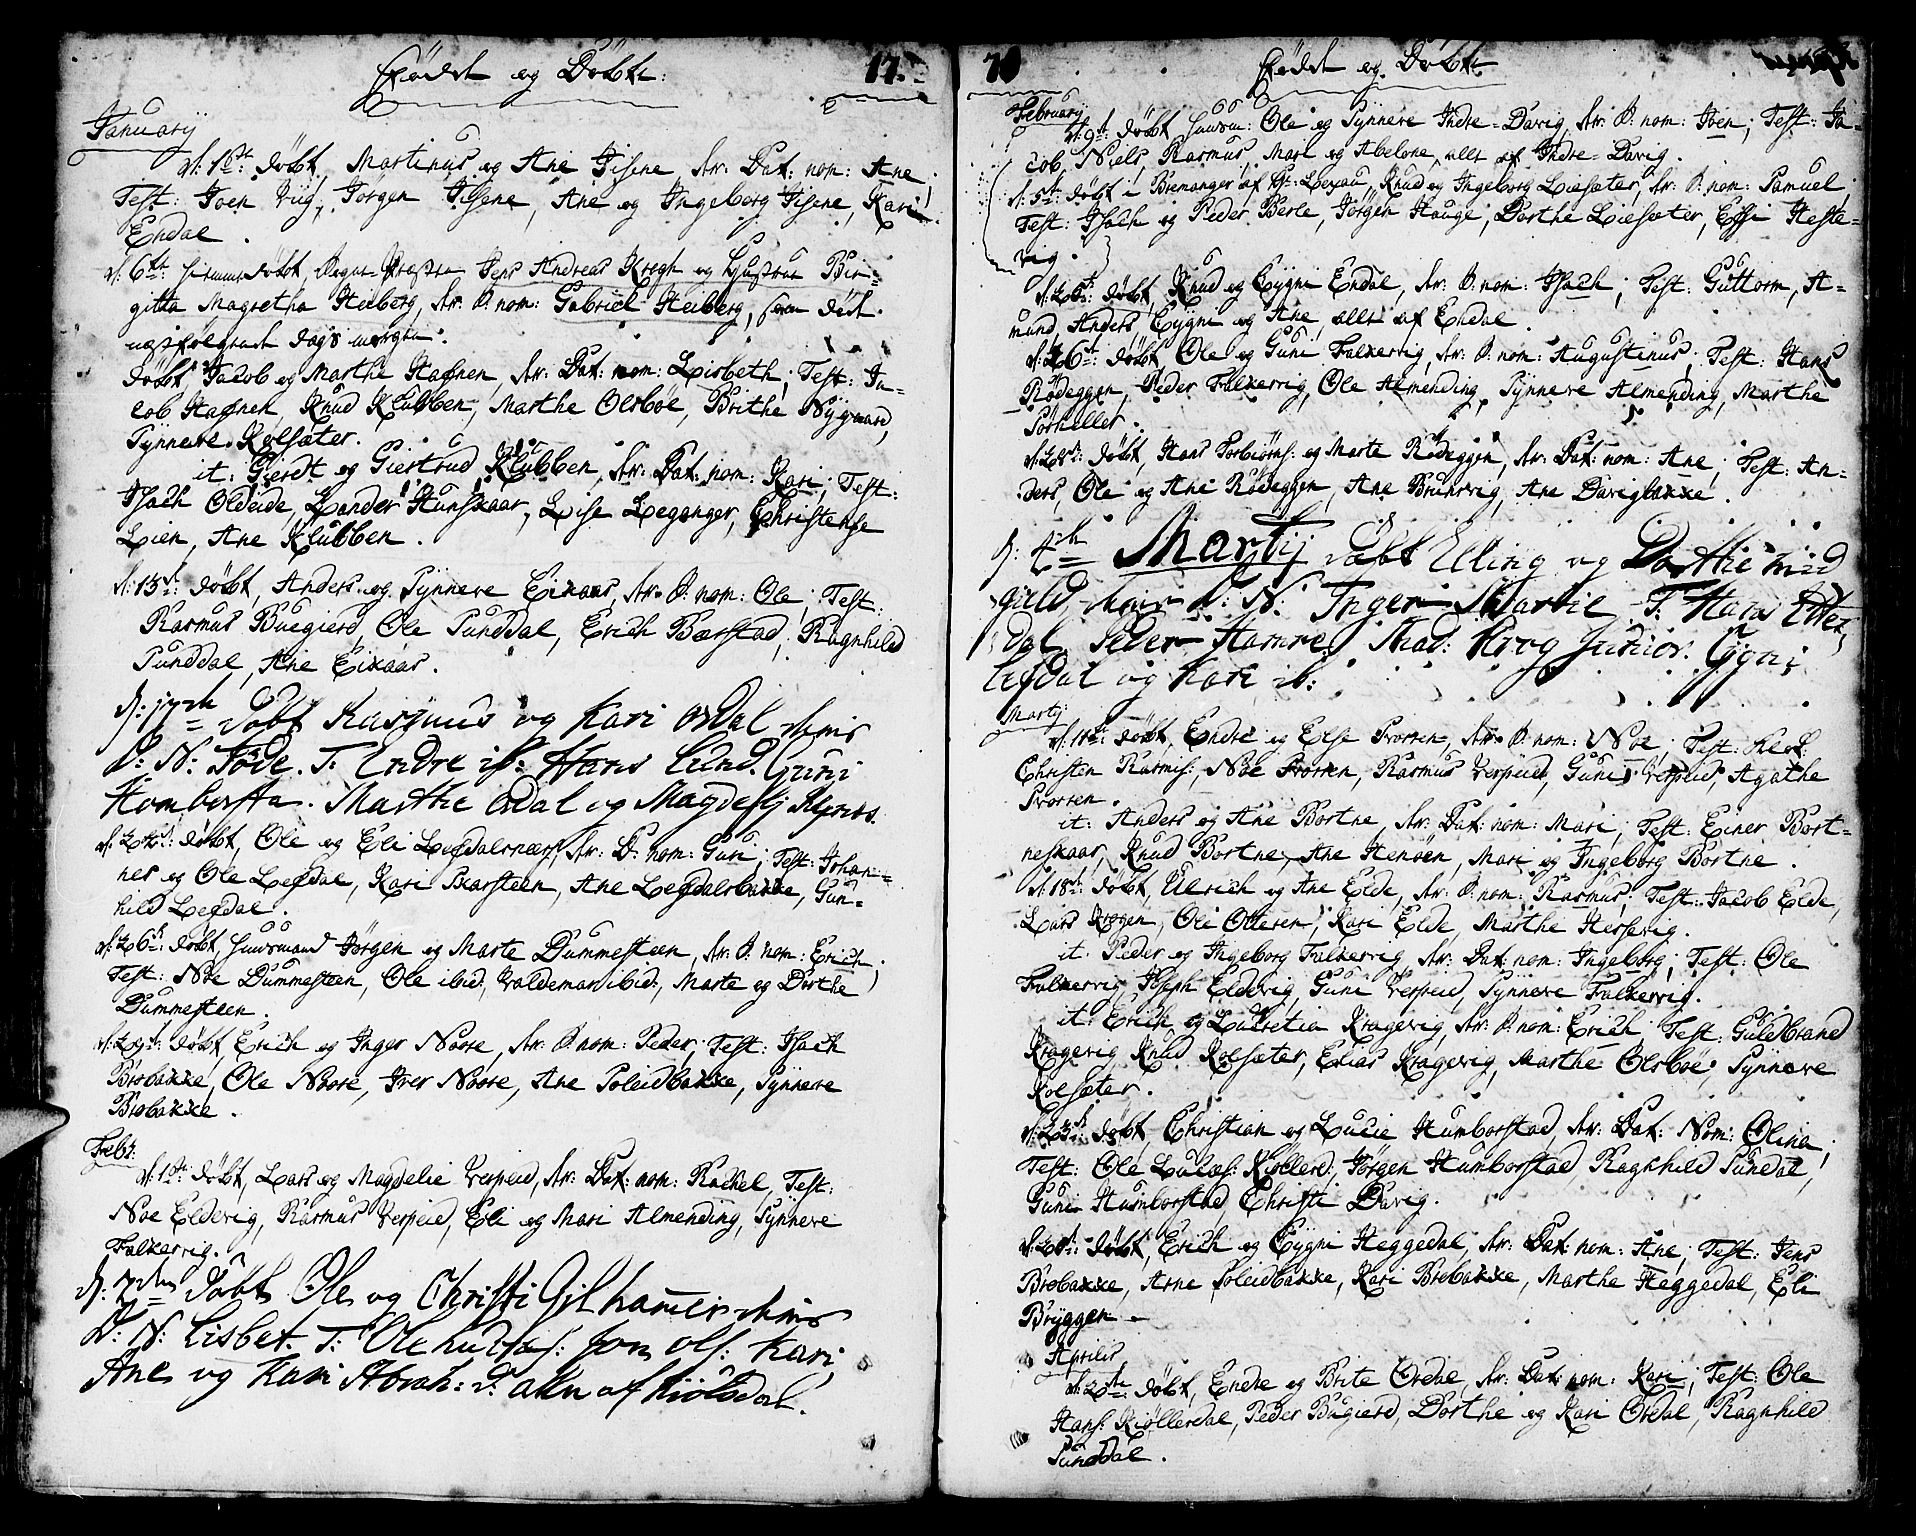 Fødde og Døbte. 17
January
d: 1ste døbt, Martinus og Ane Isene, der: Dat: nom: Ane;
Test: Joen Riig, Jørgen Isene, Ane og Ingeborg Isene, Kari
Endal.
d: 6te: døbt, Jens Andreas Krogh og Hustrue Bir-
gitta Magretha Heiberg, der: D: nom: Gabriel Heiberg, som døde
næstfølgende dags morgen.
døbt, Jacob og Marthe Hafnen, der: Dat: nom: Lisbeth; Test: Ja-
cob Hafnen, Knud Klubben, Marthe Olsbøe, Brithe Nygaard,
Synneve Kolsæter.
it: Gierdt og Giertrud Klubben, der: Dat: nom: Kari; Test:
Isach Oldeide, Lander Hunskaar, Lise Leganger, Christense
Lien, Ane Klubben.
d: 13de: døbt, Anders og Synneve Eikaas, der: D: nom: Ole; Test:
Rasmus Buegierd, Ole Sunddal, Erich Barstad, Ragnhild
Sunddal, Ane Eikaas.
d: 17de døbt Rasmus og Kari Ordal
D: N: Tøde. T: Endre ib: Hans Lund. Guni
Homborsta. Marthe Ordal og
døbt, Ole og Eli Lefdalsnæs, der: D: nom: Guri; Test: Johan-
nes og Ole Lefdal, Kari Skarsteen, Ane Lefdalsbakke, Gun-
hild Lefdal.
d: 26de: døbt, Huusmand Jørgen og Marte Dummesteen, der: D: nom: Erich;
Test: Noe Dummesteen, Ole ibid:, Valdeman ibid:, Marte og Dorthe
Dummesteen.
døbt, Erich og Inger Noore, der: D: nom: Peder; Test: Isach
Brobakke, Ole Noore, Iver Noore, Ane Soleidbakke, Synneve
Brobakke.
Febr:
d: 1ste: døbt, Lars og Magdelie Verpeid, der: Dat: nom: Rachel, Test:
Noe Eldevig, Rasmus Verpeid, Eli og Mari Almending, Synneve
Falkevig.
døbt Ole og Christi Gilhamer
D: N: Lisbet. T: Ole Jon Ols: Kari,
Ane og Kari Abrah: d: alle af Kiølsdal.
70 Fødde og Døbte.
February
døbt, Huusm: Ole og Synneve Indre-Davig, der: D: nom: Joen; Test: Ja-
cob, Niels, Rasmus, Mari og Abelone, alle af Indre-Davig.
døbt i Bremanger af Hr: Lexau, Knud og Ingeborg Liesæter, der: D: nom: Samuel
Test: Isach og Peder Berle, Jørgen Hauge, Dorthe Liesæter, Effi Heste-
vig.
døbt, Knud og Eygni Endal, der: D: nom: Isach; Test: Guttorm, A-
mund, Anders, Eygni og Ane, alle af Endal.
døbt, Ole og Guni Falkevig, der: D: nom: Augustinus; Test: Hans
Rødeggen, Peder Falkevig, Ole Almending, Synneve Almending, Marthe
Sørheller.
døbt, Hans Torbiørns: og Marte Rødeggen, der: Dat: nom: Ane; Test: An-
ders, Ole og Ane Rødeggen, Ane Bruhnvig, Ane Davigbakke.
d: 4de Martij døbt Elling og Dorthe Mid
gield, N: Inger Martie T: Hans
dal Peder Hamre, Mad: Krog Junior. Gyni
Lefdal og Kari ib:
Martij
døbt, Endre og Else Protten, der: D: nom: Noe; Test:
Christen Rasmus:, Noe Protten, Rasmus Verpeid, Guni Verpeid, Agathe
Protten.
it: Anders og Ane Bortne, der: Dat: nom: Mari; Test: Einer Bort-
neskaar, Knud Bortne, Ane Henøen, Mari og Ingeborg Bortne.
d: 18de: døbt, Ulrich og Ane Elde, der: D: nom: Rasmus; Test: Jacob Elde,
Lars Krogen, Ole Ottesen, Kari Elde, Marthe Hessevig.
it: Peder og Ingeborg Falkevig, der: Dat: nom: Ingeborg; Test: Ole
Falkevig, Joseph Eldevig, Guni Verpeid, Synneve Falkevig.
it: Erich og Lucretia Kragevig, der: D: nom: Erich, Test: Guldbrand
Kragevig, Knud Kolsæter, Elias Kragevig, Marthe Olsbøe, Synneve
Kolsæter.
døbt, Christian og Lucie Humborstad, der: Dat: Nom: Olina;
Test: Ole Lucas: Kiøllerd, Jørgen Humborstad, Ragnhild Sundal,
Guni Humborstad, Christi Davig.
døbt, Erich og Eygni Heggedal, der: Dat: nom: Ane; Test: Jens
Brobakke, Arne Soleidbakke, Kari Brobakke, Marthe Heggedal, Eli
Bryggen.
Aprilis
døbt, Endre og Brite Ordal, der: Dat: nom: Kari; Test: Ole
Hans: Kiøllerdal, Peder Bugierd, Dorthe og Kari Ordal, Ragnhild
Sunddal.